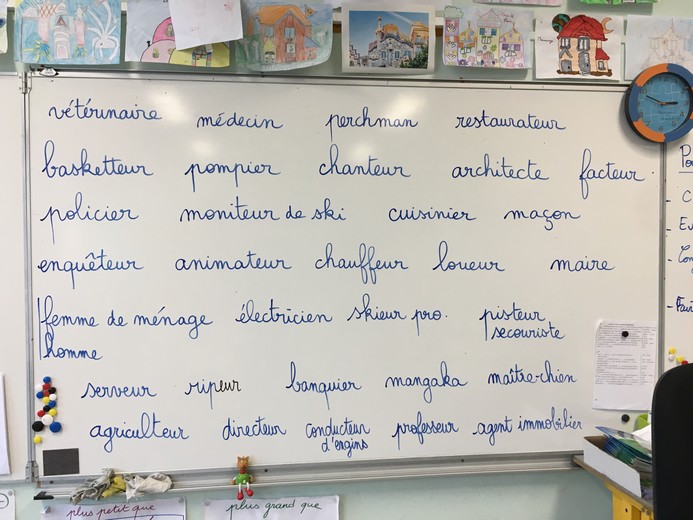 vétérinaire médecin perchman restaurateur
basketteur pompier chanteur architecte facteur.
policier moniteur de ski cuisinier maçon
enquêteur animateur chauffeur loueur maire
femme de ménage électricien skieur pro. pisteur
secouriste
homme
serveur ripeur banquier mangaka maître-chien
agriculteur directeur conducteur professeur agent immobilier
d'engins
plus petit que plus grand que